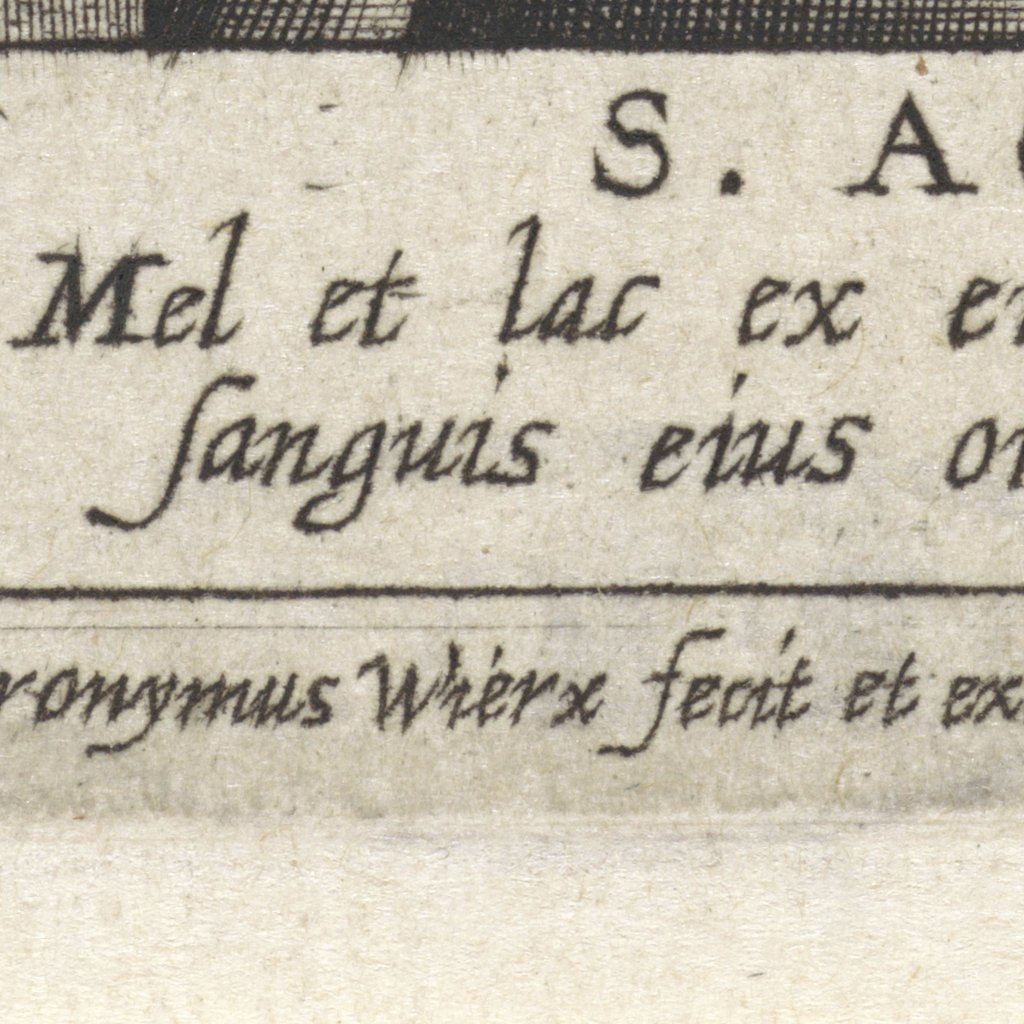 S. A
Mel et lac ex e
ſanguis eius o
ronymus Wierx fecit et ex